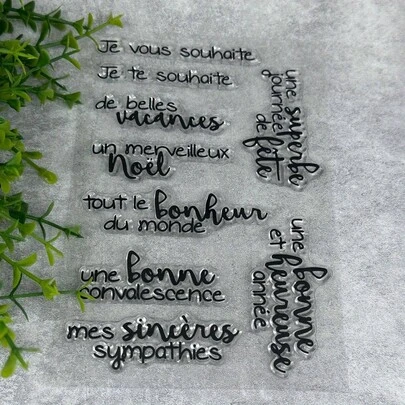 Je vous souhaite
Je te souhaite
de belles
vacances
un merveilleux
Noël
tout le bonheur
du monde
une bonne
convalescence
mes sincères
sympathies
une superbe
journée
de fête
une bonne
et heureuse
année